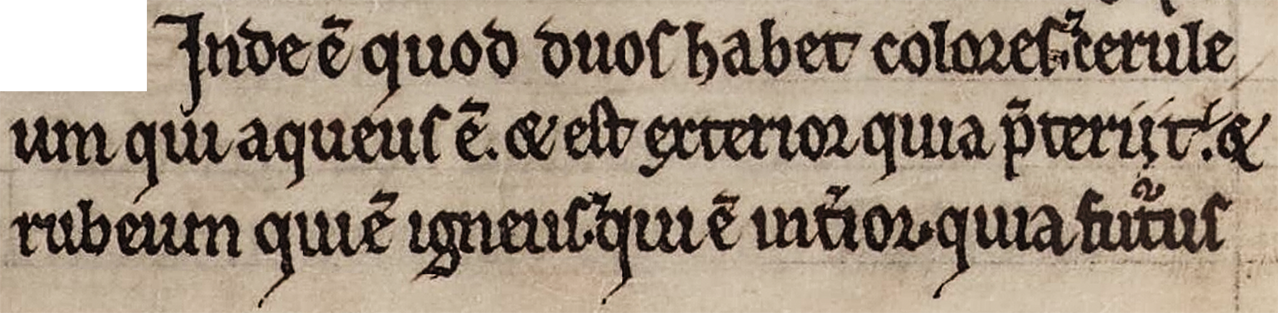 Inde ē quod duos habet colores. cerule
um qui aqueus ē. & est exterior quia p̄teriit. &
rubeum qui ē igneus. qui ē int̄ior. quia futurus